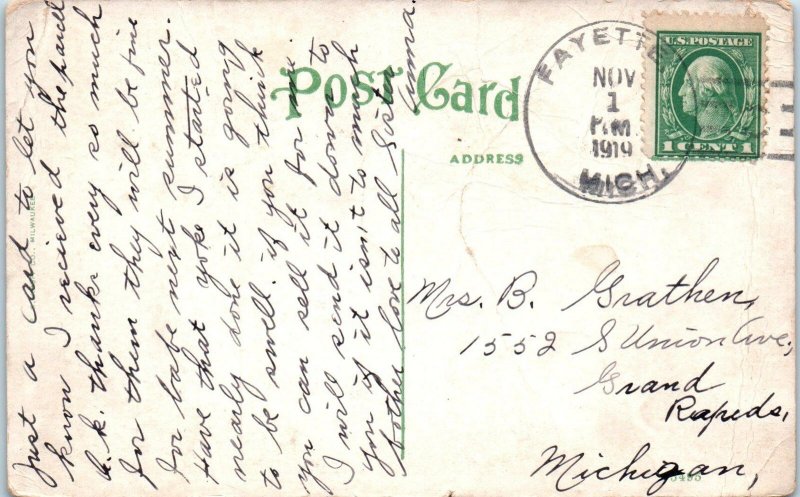 Just a card to let you
know I recieved the parcel
O.K. thanks every so much
for them they will be fine
for babe next summer.
Have that yoke I started
nearly done it is going
to be swell. if you think
you can sell it for me.
I will send it down to
you if it isn't to much
bother love to all Sister
Anna.
POST CARD
ADDRESS
FAYETTE
NOV
1
P.M
1919
MICH.
U.S. POSTAGE
1 CENT 1
Mrs. B. Grathen,
1552 S Union Ave,
Grand
Rapids,
Michigan,
MILWAUKEE